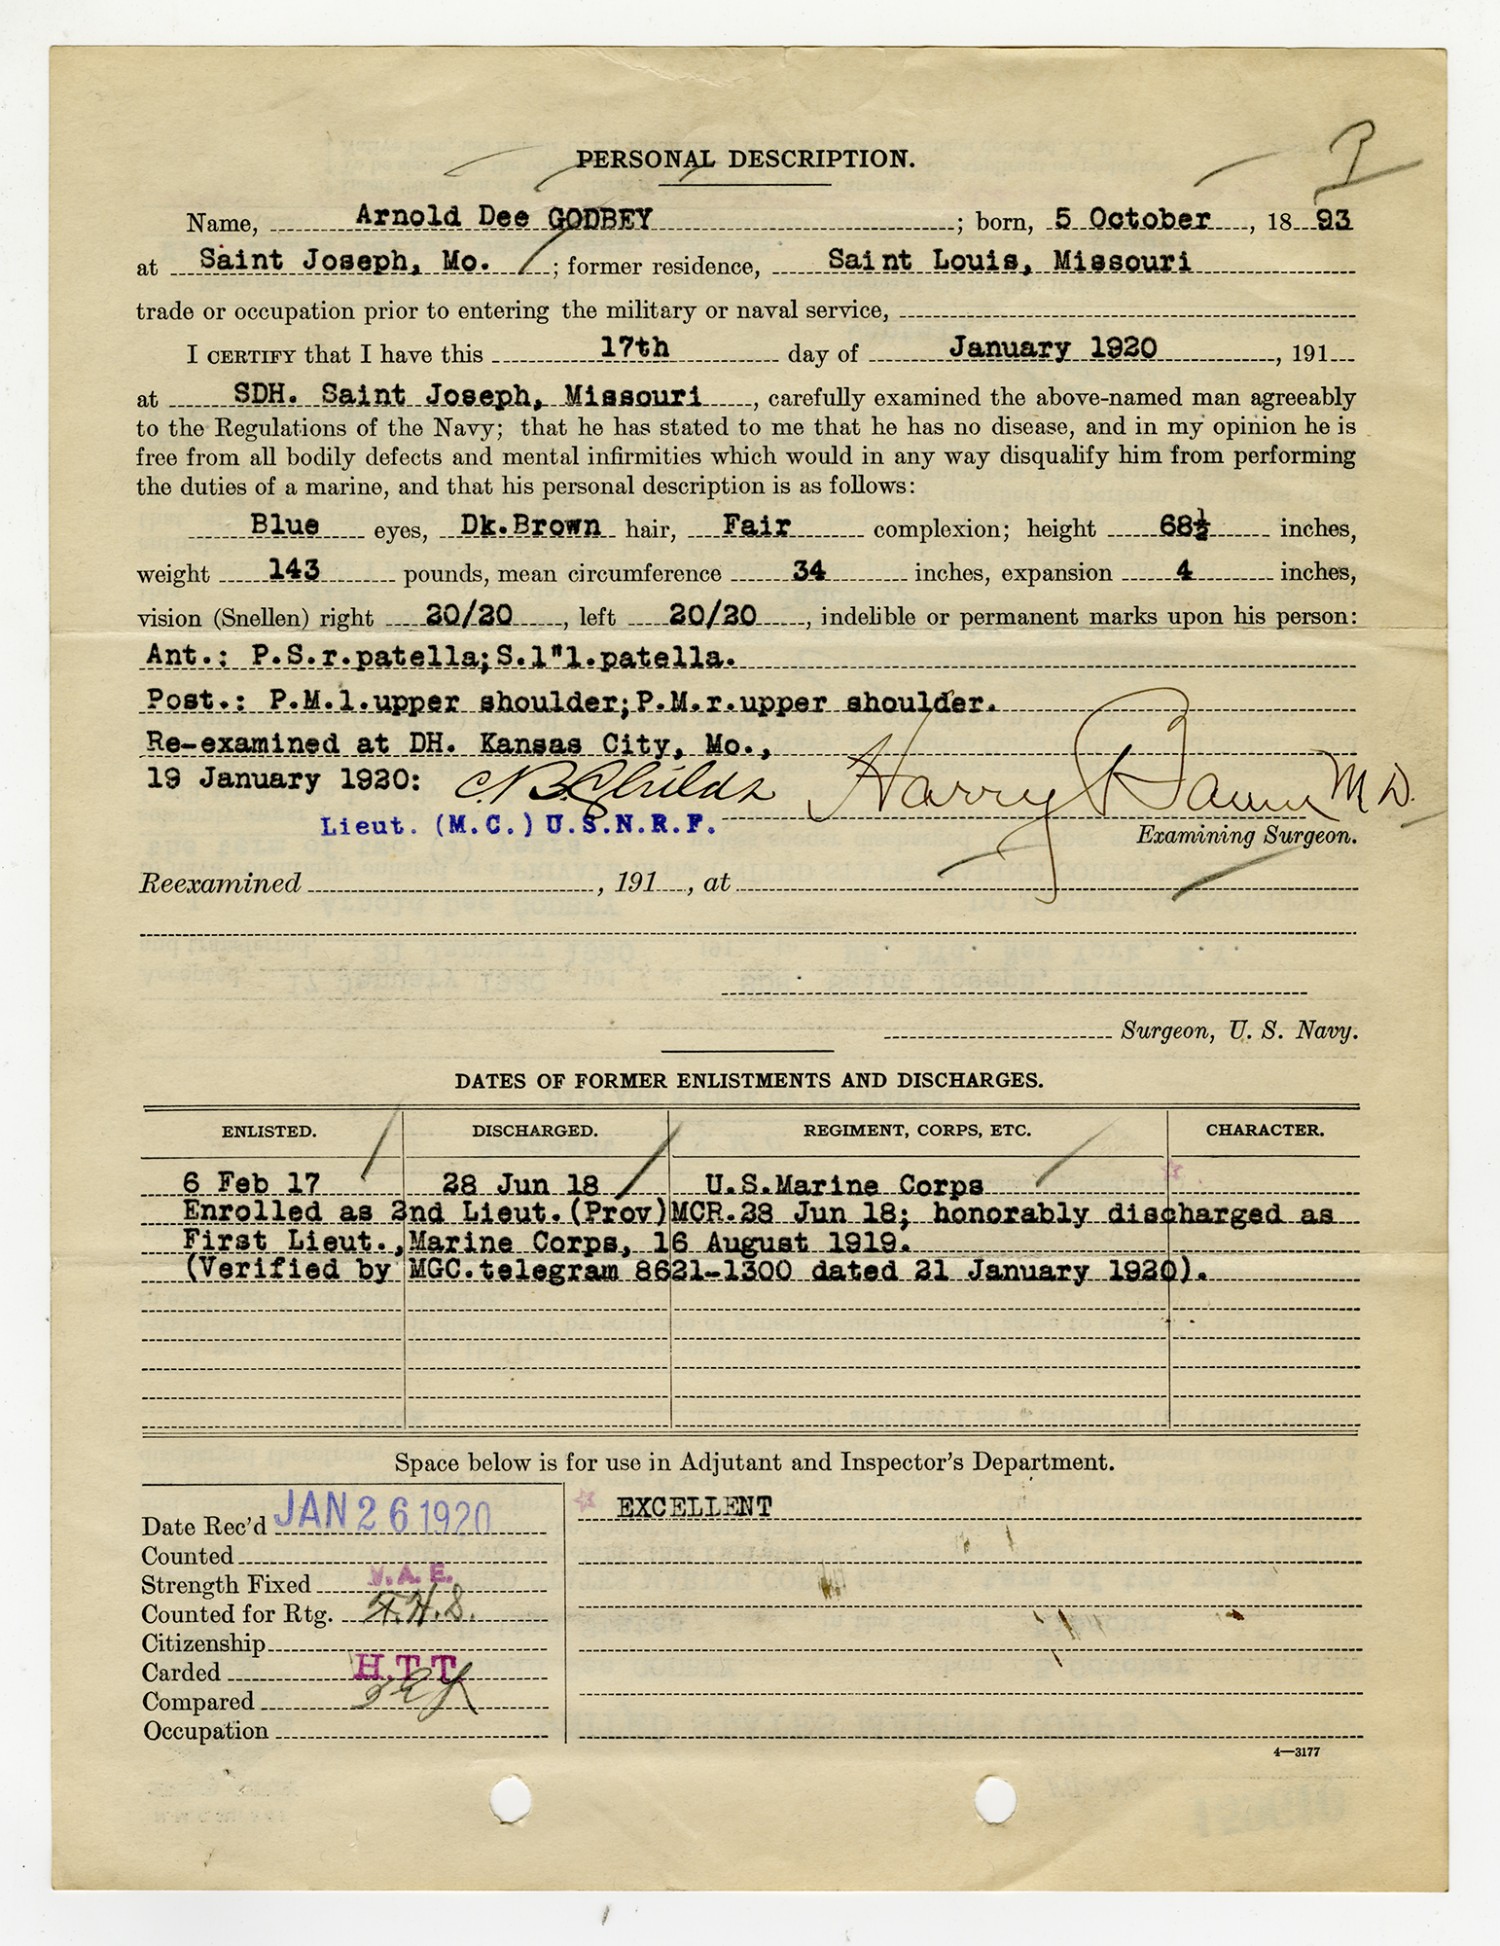 PERSONAL DESCRIPTION.
Name, Arnold Dee GODBEY; born, 5 October, 1893
at Saint Joseph, Mo.; former residence, Saint Louis, Missouri
trade or occupation prior to entering the military or naval service,
I CERTIFY that I have this 17th day of January 1920, 191
at SDH. Saint Joseph, Missouri, carefully examined the above-named man agreeably
to the Regulations of the Navy; that he has stated to me that he has no disease, and in my opinion he is
free from all bodily defects and mental infirmities which would in any way disqualify him from performing
the duties of a marine, and that his personal description is as follows:
Blue eyes, Dk.Brown hair, Fair complexion; height 68½ inches,
weight 143 pounds, mean circumference 34 inches, expansion 4 inches,
vision (Snellen) right 20/20, left 20/20, indelible or permanent marks upon his person:
Ant.: P.S.r.patella;S.1"l.patella.
Post.: P.M.l.upper shoulder;P.M.r.upper shoulder.
Re-examined at DH. Kansas City, Mo.,
19 January 1920: C.B. Childs Harry M D.
Lieut. (M.C.) U.S.N.R.F.
Examining Surgeon.
Reexamined, 191, at
Surgeon, U. S. Navy.
DATES OF FORMER ENLISTMENTS AND DISCHARGES.
ENLISTED. DISCHARGED. REGIMENT, CORPS, ETC. CHARACTER.
6 Feb 17 28 Jun 18 U.S.Marine Corps
Enrolled as 2nd Lieut.(Prov)MCR.28 Jun 18; honorably discharged as
First Lieut.,Marine Corps, 16 August 1919.
(Verified by MGC.telegram 8621-1300 dated 21 January 1920).
Space below is for use in Adjutant and Inspector's Department.
Date Rec'd JAN 26 1920 EXCELLENT
Counted
Strength Fixed V.A.E.
Counted for Rtg. F.H.S.
Citizenship
Carded H.T.T.
Compared
Occupation
4—3177